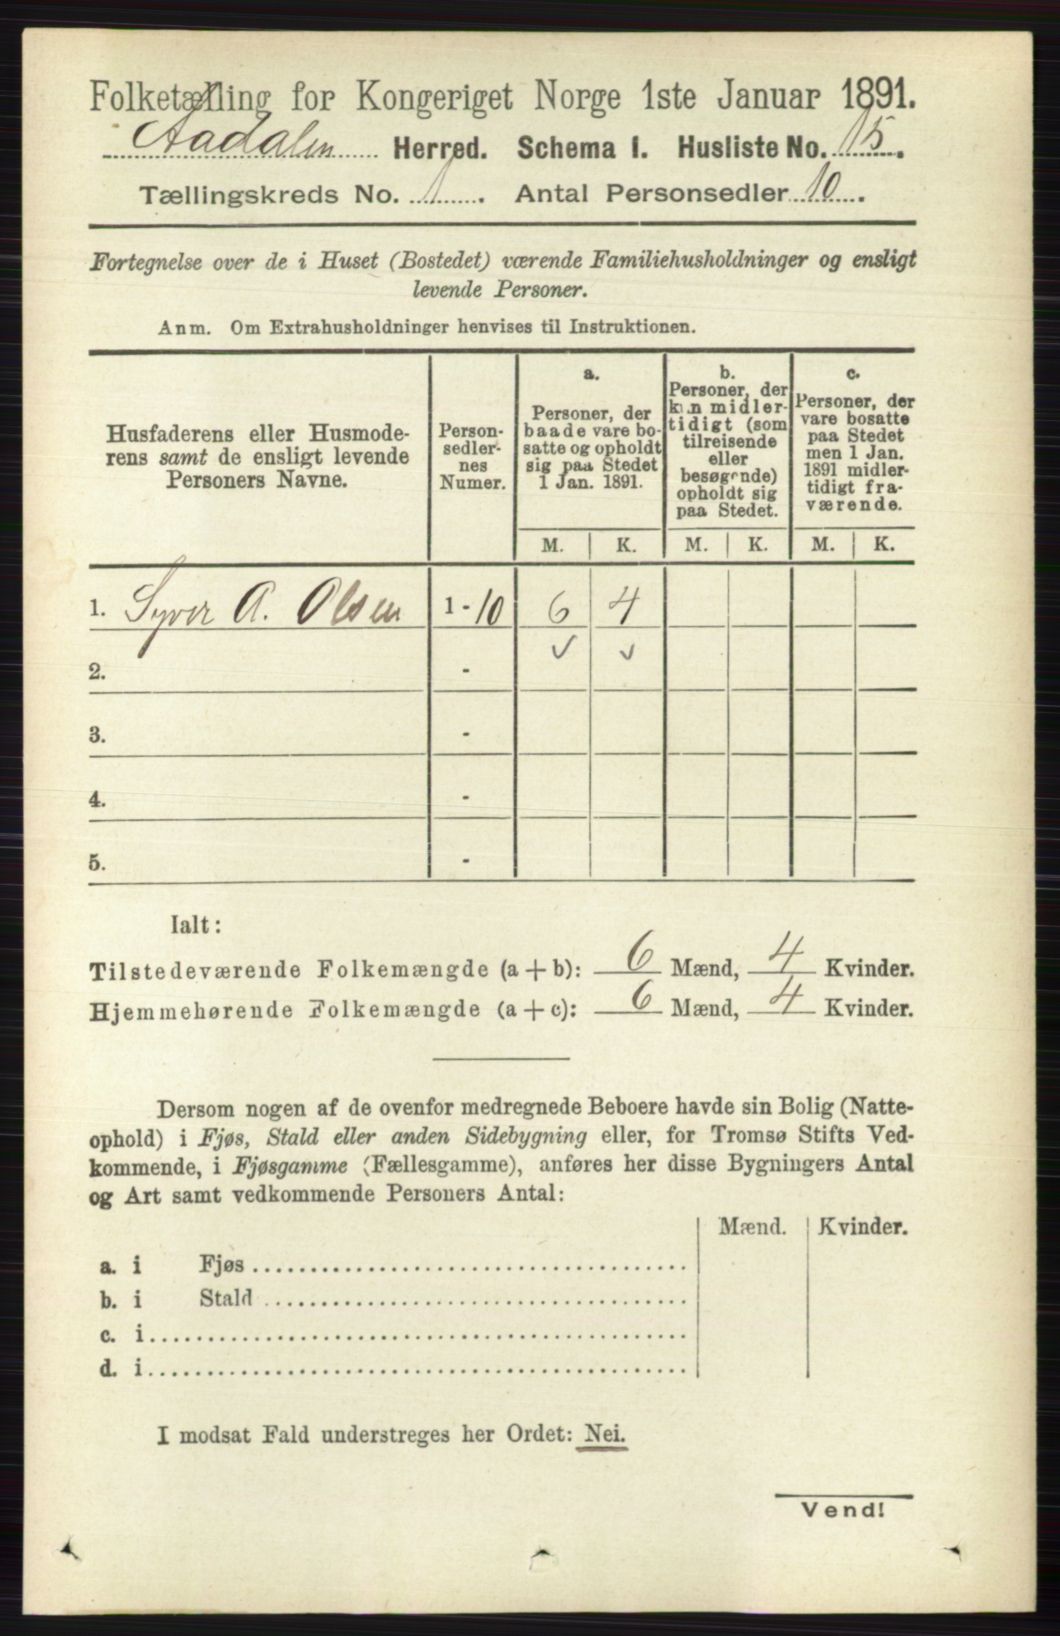 Folketælling for Kongeriget Norge 1ste Januar 1891.
Aadalen Herred. Schema 1. Husliste No. 15.
Tællingskreds No. 1. Antal Personsedler 10.
Fortegnelse over de i Huset (Bostedet) værende Familiehusholdninger og ensligt
levende Personer.
Anm. Om Extrahusholdninger henvises til Instruktionen.
Husfaderens eller Husmode-
rens samt de ensligt levende
Personers Navne.
Person-
sedler-
nes
Numer.
a.
Personer, der
baade vare bo-
satte og opholdt
sig paa Stedet
1 Jan. 1891.
b.
Personer, der
kun midler-
tidigt (som
tilreisende
eller
besøgende)
opholdt sig
paa Stedet.
c.
Personer, der
vare bosatte
paa Stedet
men 1 Jan.
1891 midler-
tidigt fra-
værende.
M. K. M. K. M. K.
1. Syver A. Olsen 1 - 10 6 4
2. -
3. -
4. -
5. -
Ialt:
Tilstedeværende Folkemængde (a + b): 6 Mænd, 4 Kvinder.
Hjemmehørende Folkemængde (a + c): 6 Mænd, 4 Kvinder.
Dersom nogen af de ovenfor medregnede Beboere havde sin Bolig (Natte-
ophold) i Fjøs, Stald eller anden Sidebygning eller, for Tromsø Stifts Ved-
kommende, i Fjøsgamme (Fællesgamme), anføres her disse Bygningers Antal
og Art samt vedkommende Personers Antal:
Mænd. Kvinder.
a. i Fjøs
b. i Stald
c. i
d. i
I modsat Fald understreges her Ordet: Nei.
Vend!